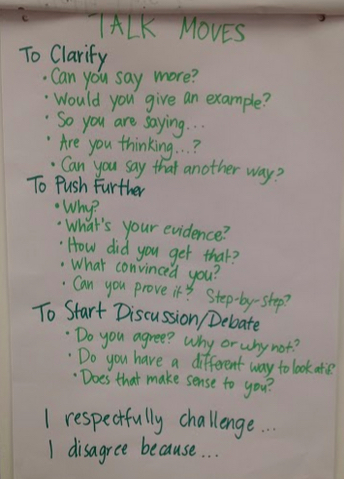 TALK MOVES
To Clarify
• Can you say more?
• Would you give an example?
• So you are saying...
• Are you thinking...?
• Can you say that another way?
To Push Further
• Why?
• What's your evidence?
• How did you get that?
• What convinced you?
• Can you prove it? Step-by-Step?
To Start Discussion/Debate
• Do you agree? Why or why not?
• Do you have a different way to look at it?
• Does that make sense to you?
I respectfully challenge...
I disagree because...